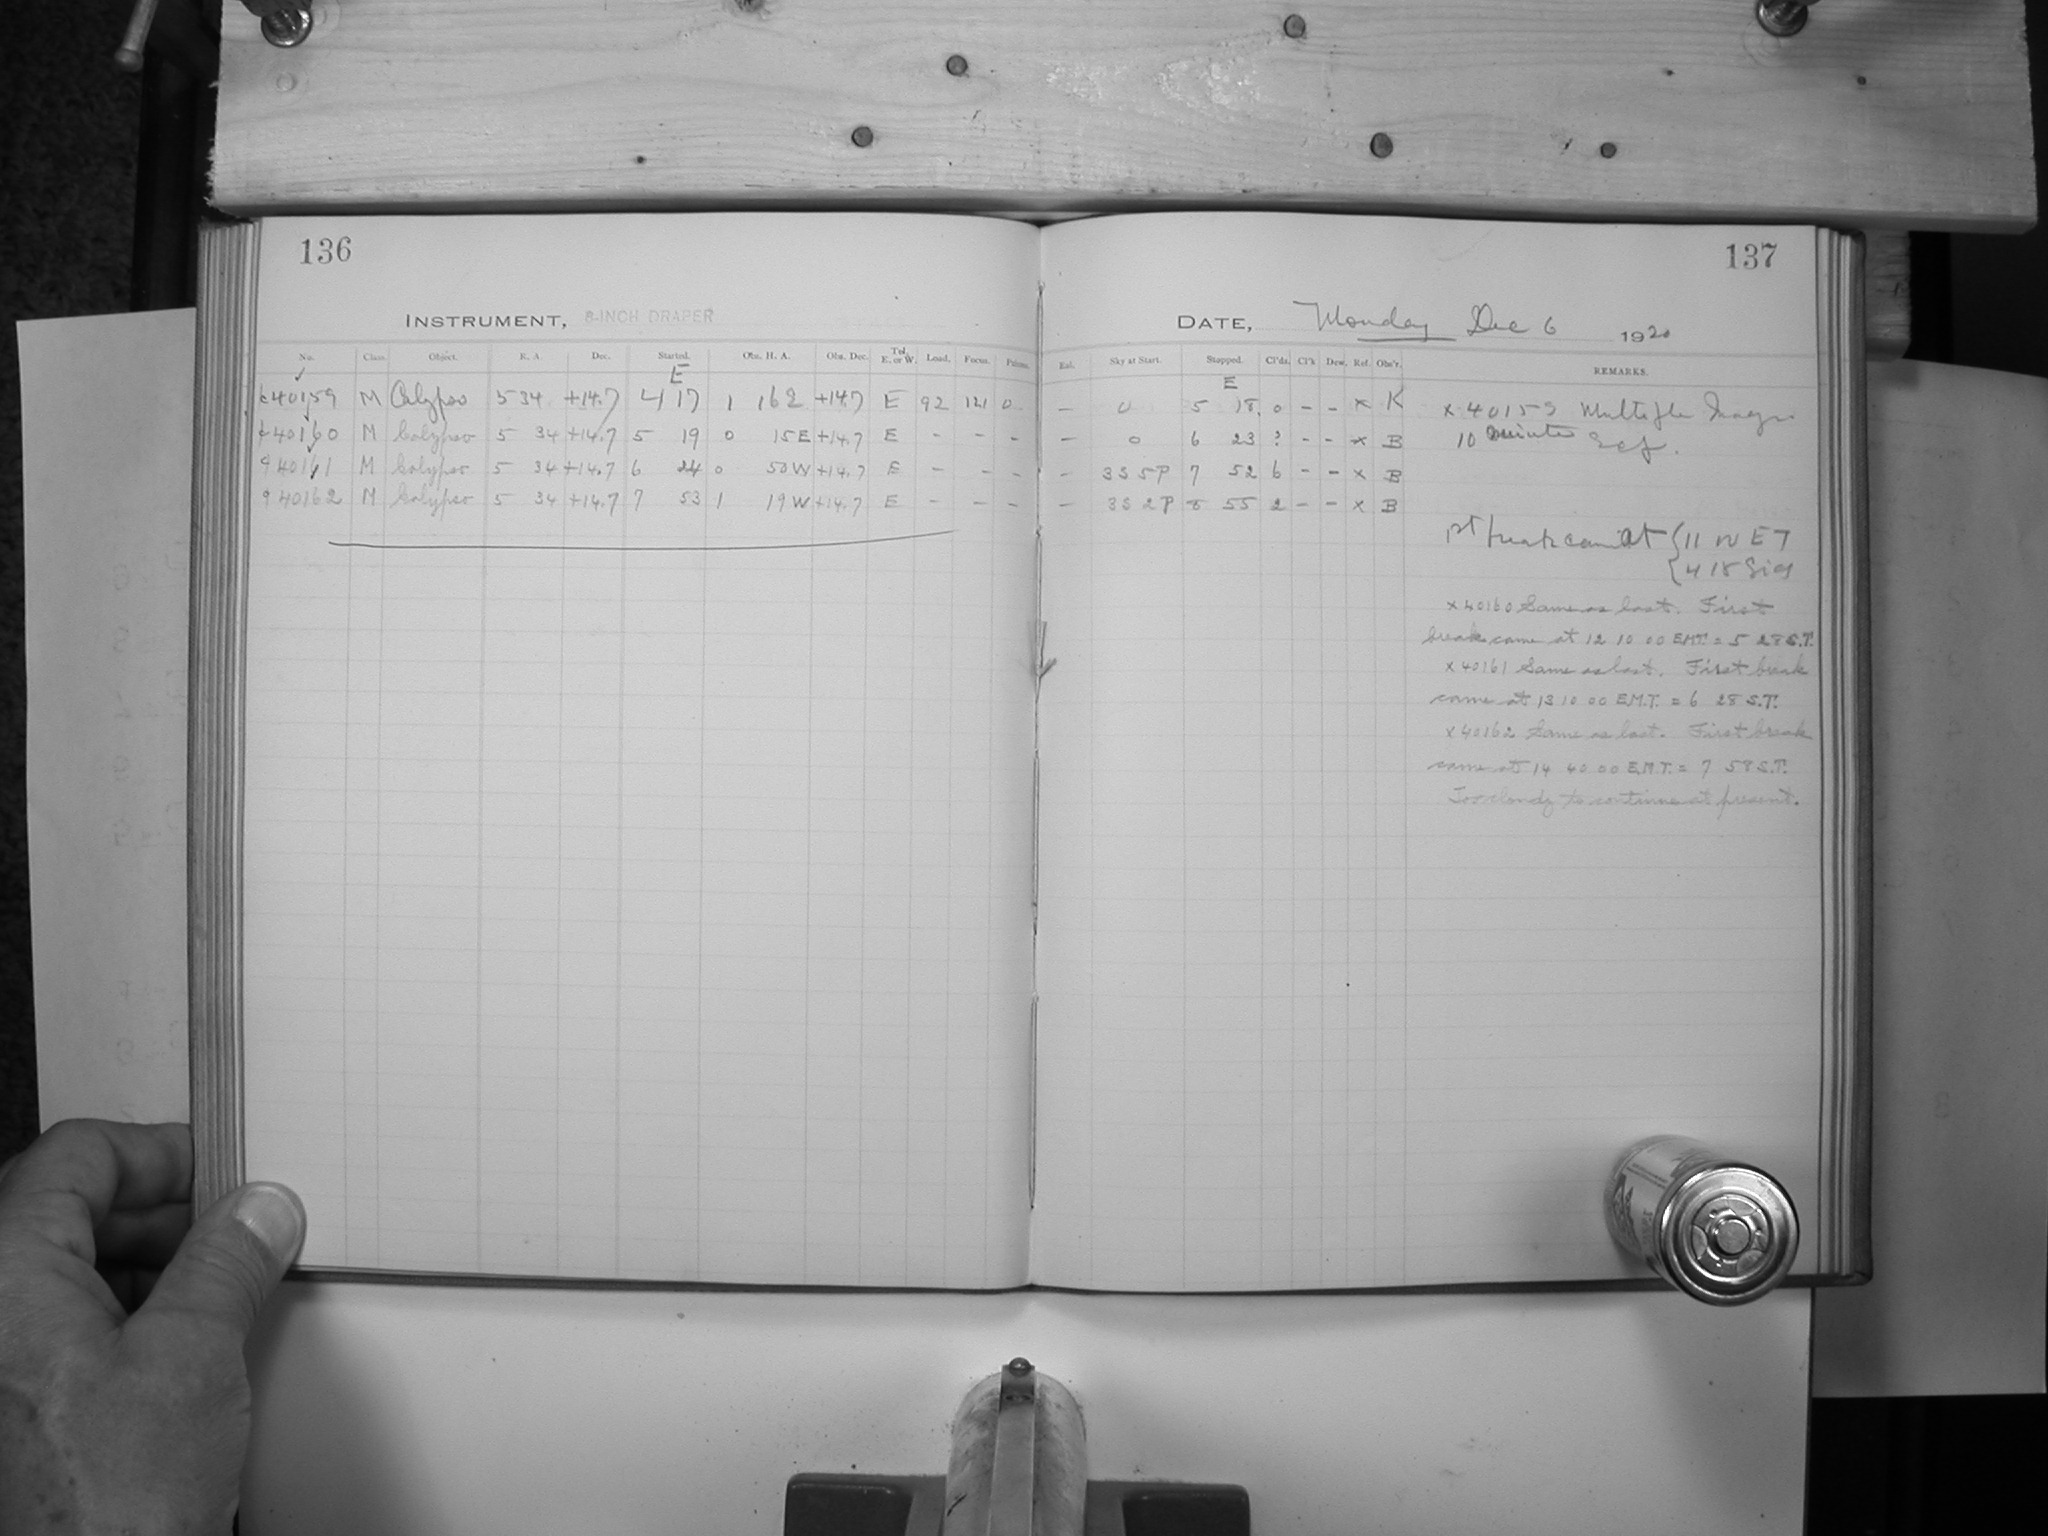 136
INSTRUMENT, 8-INCH DRAPER
No. Class. Object. R. A. Dec. Started. Obs. H. A. Obs. Dec. Tel. E. or W. Load. Focus.
E
40159 M Calypso 5 34 +14.7 4 17 1 +14.7 E 92 121 0
40160 M Calypso 5 34 +14.7 5 19 0 15 E +14.7 E - - -
40161 M Calypso 5 34 +14.7 6 24 0 50 W +14.7 E - - -
40162 M Calypso 5 34 +14.7 7 53 1 19 W +14.7 E - - -
137
DATE, Monday Dec 6 1920
Ral. Sky at Start. Stopped. Cl'ds. Cl'k Dew. Ref. Obs'r. REMARKS.
E
- 0 5 18 0 - - x K
- 0 6 23 ? - - x B
- 3S 5P 7 52 6 - - x B
- 3S 2P 8 55 2 - - x B
x 40159 Multiple Images
10 minutes
1st break came at
x 40160 Same as last. First
break came at 12 10 00 E.M.T. = 5 28 S.T.
x 40161 Same as last. First break
came at 13 10 00 E.M.T. = 6 28 S.T.
x 40162 Same as last. First break
came at 14 40 00 E.M.T. = 7 58 S.T.
Too cloudy to continue at present.